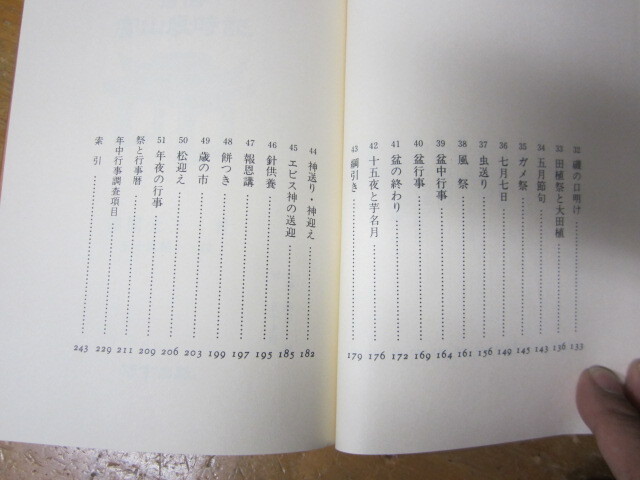 32 磯の口明け 133
33 田植祭と大田植 136
34 五月節句 143
35 ガメ祭 145
36 七月七日 149
37 虫送り 156
38 風祭 161
39 盆中行事 164
40 盆行事 169
41 盆の終わり 172
42 十五夜と芋名月 176
43 綱引き 179
44 神送り・神迎え 182
45 エビス神の送迎 185
46 針供養 195
47 報恩講 197
48 餅つき 199
49 歳の市 203
50 松迎え 206
51 年夜の行事 209
祭と行事暦 211
年中行事調査項目 229
索引 243